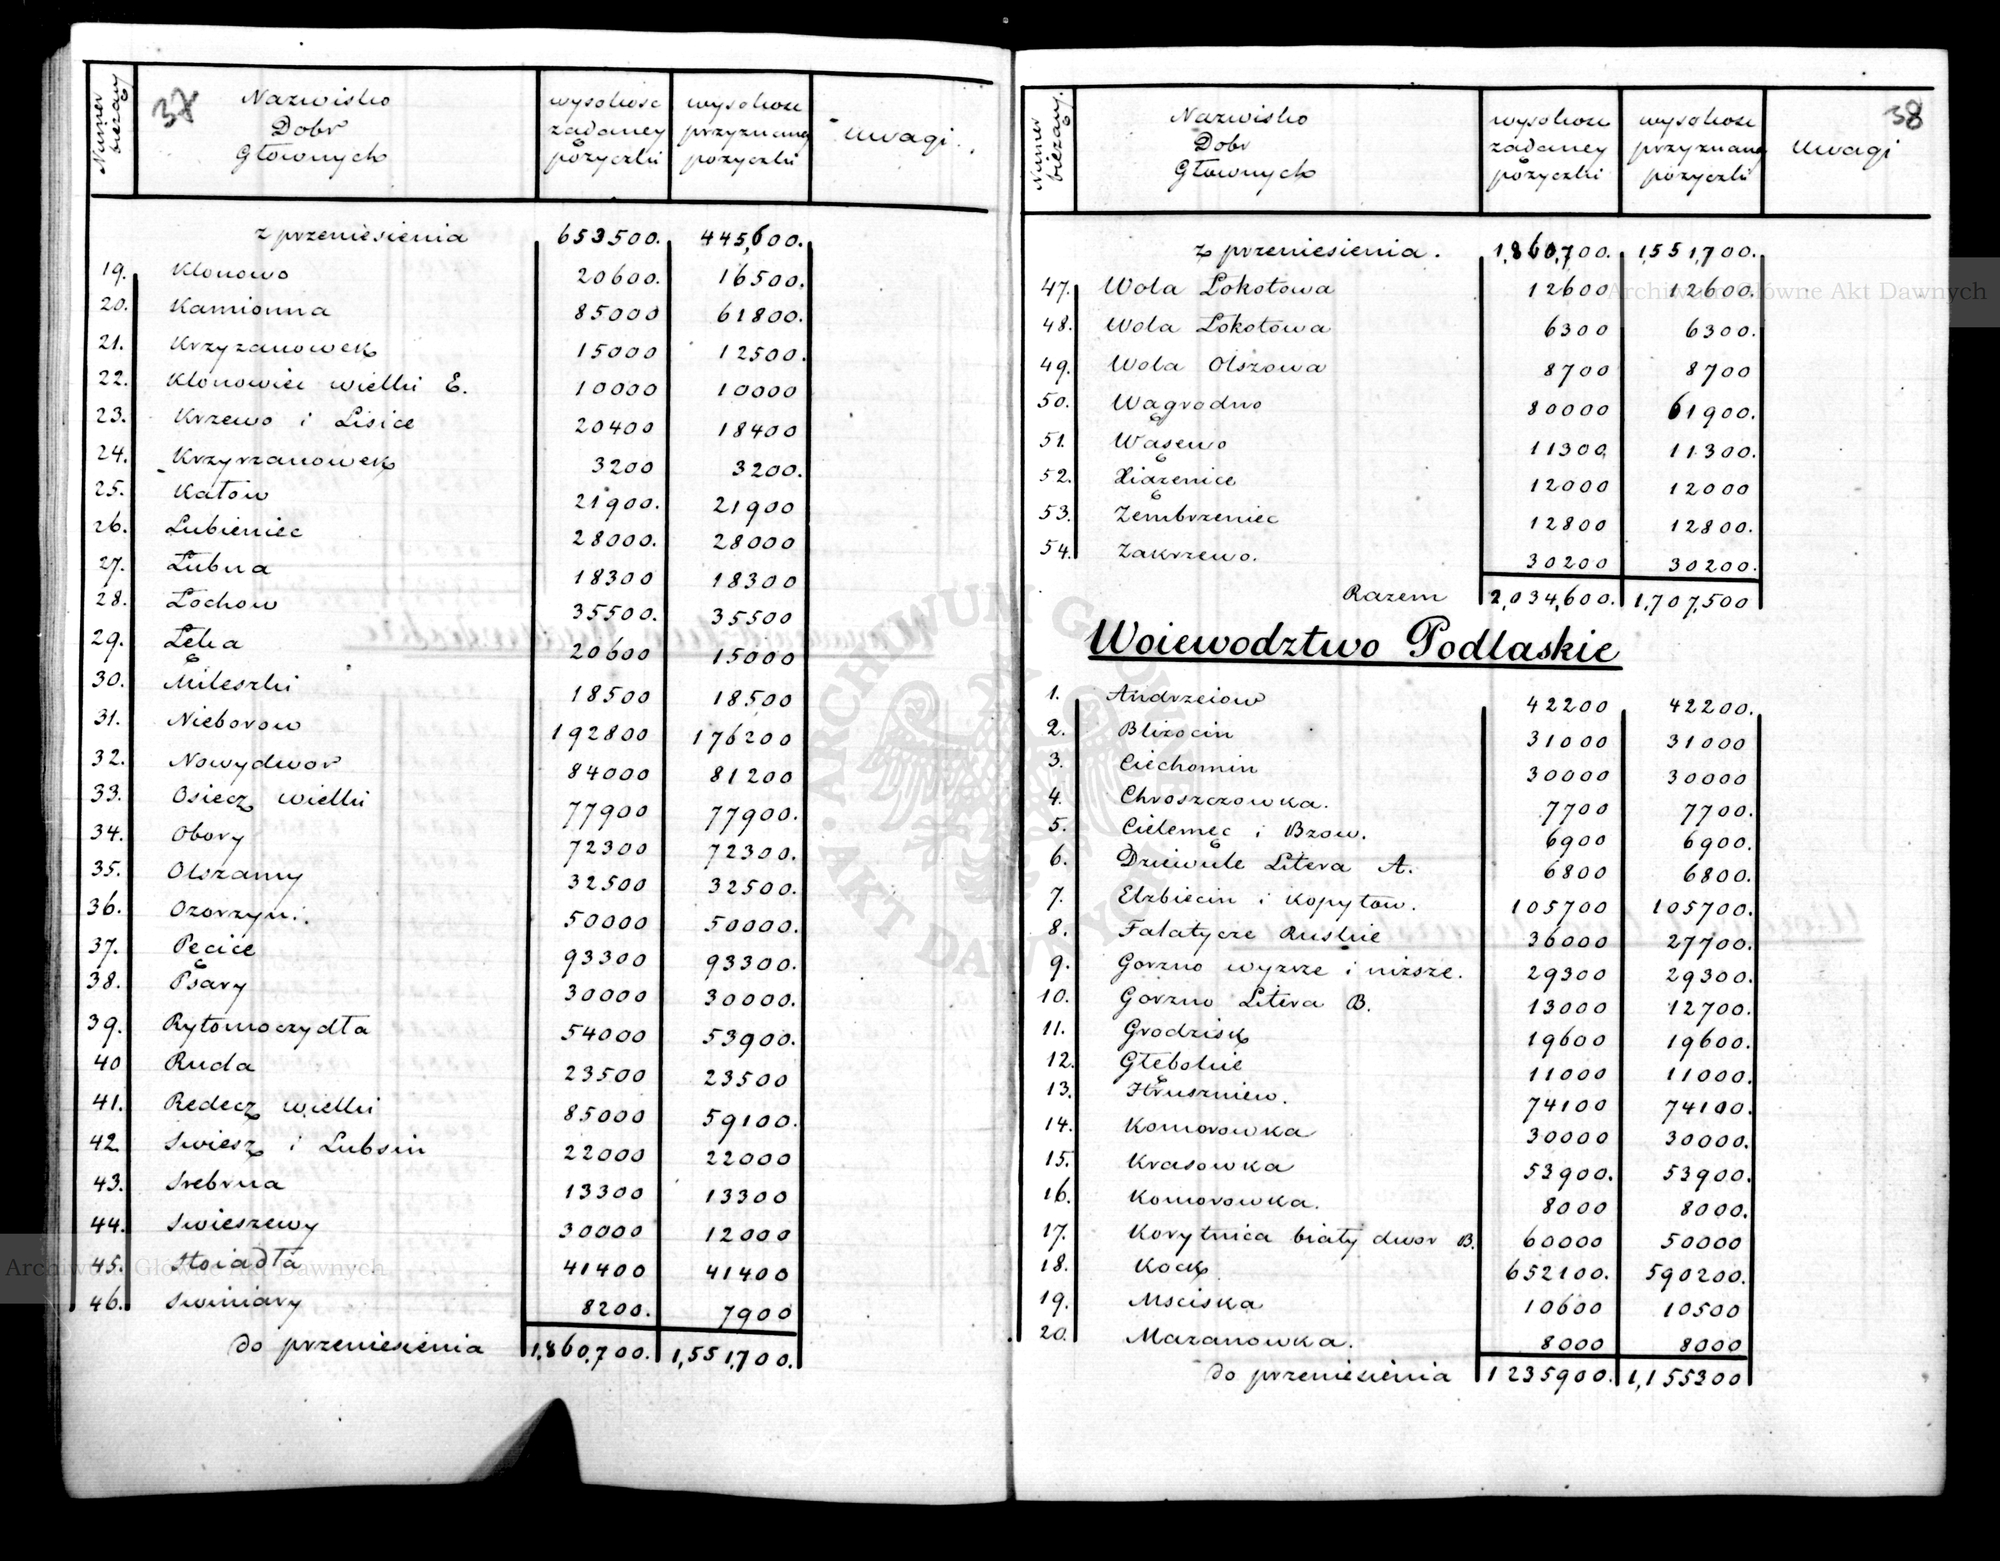 37
Numer bieżący
Nazwisko Dobr Głownych
wysokosc żądaney pożyczki
wysokosc przyznaney pożyczki
uwagi.
z przeniesienia 653500. 445,600.
19. Klonowo 20600. 16500.
20. Kamionna 85000 61800.
21. Krzyzanowek 15000 12500.
22. Klonowiec wielki E. 10000 10000
23. Krzewo i Lisice 20400 18400
24. Krzyrzanowek 3200 3200.
25. Katow 21900. 21900
26. Lubieniec 28000. 28000
27. Łubna 18300 18300
28. Łochow 35500. 35500
29. Łęka 20600 15000
30. Mileszki 18500 18500
31. Nieborow 192800 176200
32. Nowydwor 84000 81200
33. Osiecz wielki 77900 77900.
34. Obory 72300 72300.
35. Olszamy 32500 32500.
36. Ozorzyn. 50000 50000.
37. Pęcice 93300 93300.
38. Psary 30000 30000.
39. Rytomoczydła 54000 53900.
40 Ruda 23500 23500
41. Redecz wielki 85000 59100.
42 Swiesz i Lubsin 22000 22000
43. Srebrna 13300 13300
44. Swieszewy 30000 12000
45. Stoiadła 41400 41400
46. Swiniary 8200. 7900
do przeniesienia 1,860,700. 1,551,700.
38
Numer bieżący.
Nazwisko Dobr Głownych
wysokosc żądaney pożyczki
wysokosc przyznaney pożyczki
uwagi
z przeniesienia. 1,860,700. 1,551,700.
47. Wola Łokotowa 12600 12600.
48. Wola Łokotowa 6300 6300.
49. Wola Olszowa 8700 8700
50. Wągrodno 80000 61900.
51. Wąsewo 11300 11300.
52. Xiązenice 12000 12000
53. Zembrzeniec 12800 12800.
54. Zakrzewo. 30200 30200.
Razem 2,034,600. 1,707,500
Woiewodztwo Podlaskie
1. Andrzeiow 42200 42200.
2. Blizocin 31000 31000
3. Ciechomin 30000 30000
4. Chroszczowka. 7700 7700.
5. Cielemęc i Bzow. 6900 6900.
6. Dziewule Litera A. 6800 6800.
7. Elzbiecin i Kopytow. 105700 105700.
8. Falatycze Ruskie 36000 27700.
9. Gorzno wyzrze i nizsze. 29300 29300.
10. Gorzno Litera B. 13000 12700.
11. Grodzisk 19600 19600.
12. Głębokie 11000 11000.
13. Hruszniew. 74100 74100.
14. Komorowka 30000 30000.
15. Krasowka 53900. 53900.
16. Komorowka. 8000 8000.
17. Korytnica biały dwor B. 60000 50000
18. Kock 652100. 590200.
19. Msciska 10600 10500
20. Mazanowka. 8000 8000
do przeniesienia 1235900. 1,155300
ARCHIWUM GŁÓWNE AKT DAWNYCH
Archiwum Główne Akt Dawnych
Archiwum Główne Akt Dawnych